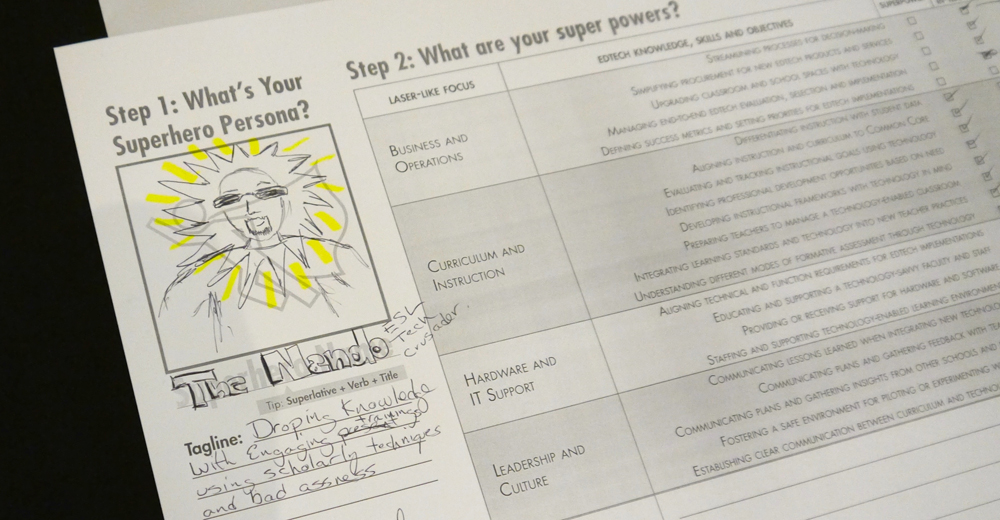 Step 1: What's Your
Superhero Persona?
The Nendo
ESL
Tech
Crusader
Tip: Superlative + Verb + Title
Tagline: Droping Knowledge
with Engaging trainings
using scholarly techniques
and bad assness
Step 2: What are your super powers?
LASER-LIKE FOCUS
EDTECH KNOWLEDGE, SKILLS AND OBJECTIVES
BUSINESS AND
OPERATIONS
STREAMLINING PROCESSES FOR DECISION-MAKING
SIMPLIFYING PROCUREMENT FOR NEW EDTECH PRODUCTS AND SERVICES
UPGRADING CLASSROOM AND SCHOOL SPACES WITH TECHNOLOGY
MANAGING END-TO-END EDTECH EVALUATION, SELECTION AND IMPLEMENTATION
DEFINING SUCCESS METRICS AND SETTING PRIORITIES FOR EDTECH IMPLEMENTATIONS
CURRICULUM AND
INSTRUCTION
DIFFERENTIATING INSTRUCTION WITH STUDENT DATA
ALIGNING INSTRUCTION AND CURRICULUM TO COMMON CORE
EVALUATING AND TRACKING INSTRUCTIONAL GOALS USING TECHNOLOGY
IDENTIFYING PROFESSIONAL DEVELOPMENT OPPORTUNITIES BASED ON NEED
DEVELOPING INSTRUCTIONAL FRAMEWORKS WITH TECHNOLOGY IN MIND
PREPARING TEACHERS TO MANAGE A TECHNOLOGY-ENABLED CLASSROOM
INTEGRATING LEARNING STANDARDS AND TECHNOLOGY INTO NEW TEACHER PRACTICES
UNDERSTANDING DIFFERENT MODES OF FORMATIVE ASSESSMENT THROUGH TECHNOLOGY
HARDWARE AND
IT SUPPORT
ALIGNING TECHNICAL AND FUNCTION REQUIREMENTS FOR EDTECH IMPLEMENTATIONS
EDUCATING AND SUPPORTING A TECHNOLOGY-SAVVY FACULTY AND STAFF
PROVIDING OR RECEIVING SUPPORT FOR HARDWARE AND SOFTWARE
STAFFING AND SUPPORTING TECHNOLOGY-ENABLED LEARNING
LEADERSHIP AND
CULTURE
COMMUNICATING LESSONS LEARNED WHEN INTEGRATING NEW
COMMUNICATING PLANS AND GATHERING FEEDBACK WITH
COMMUNICATING PLANS AND GATHERING INSIGHTS FROM OTHER SCHOOLS AND
FOSTERING A SAFE ENVIRONMENT FOR PILOTING OR EXPERIMENTING
ESTABLISHING CLEAR COMMUNICATION BETWEEN CURRICULUM AND